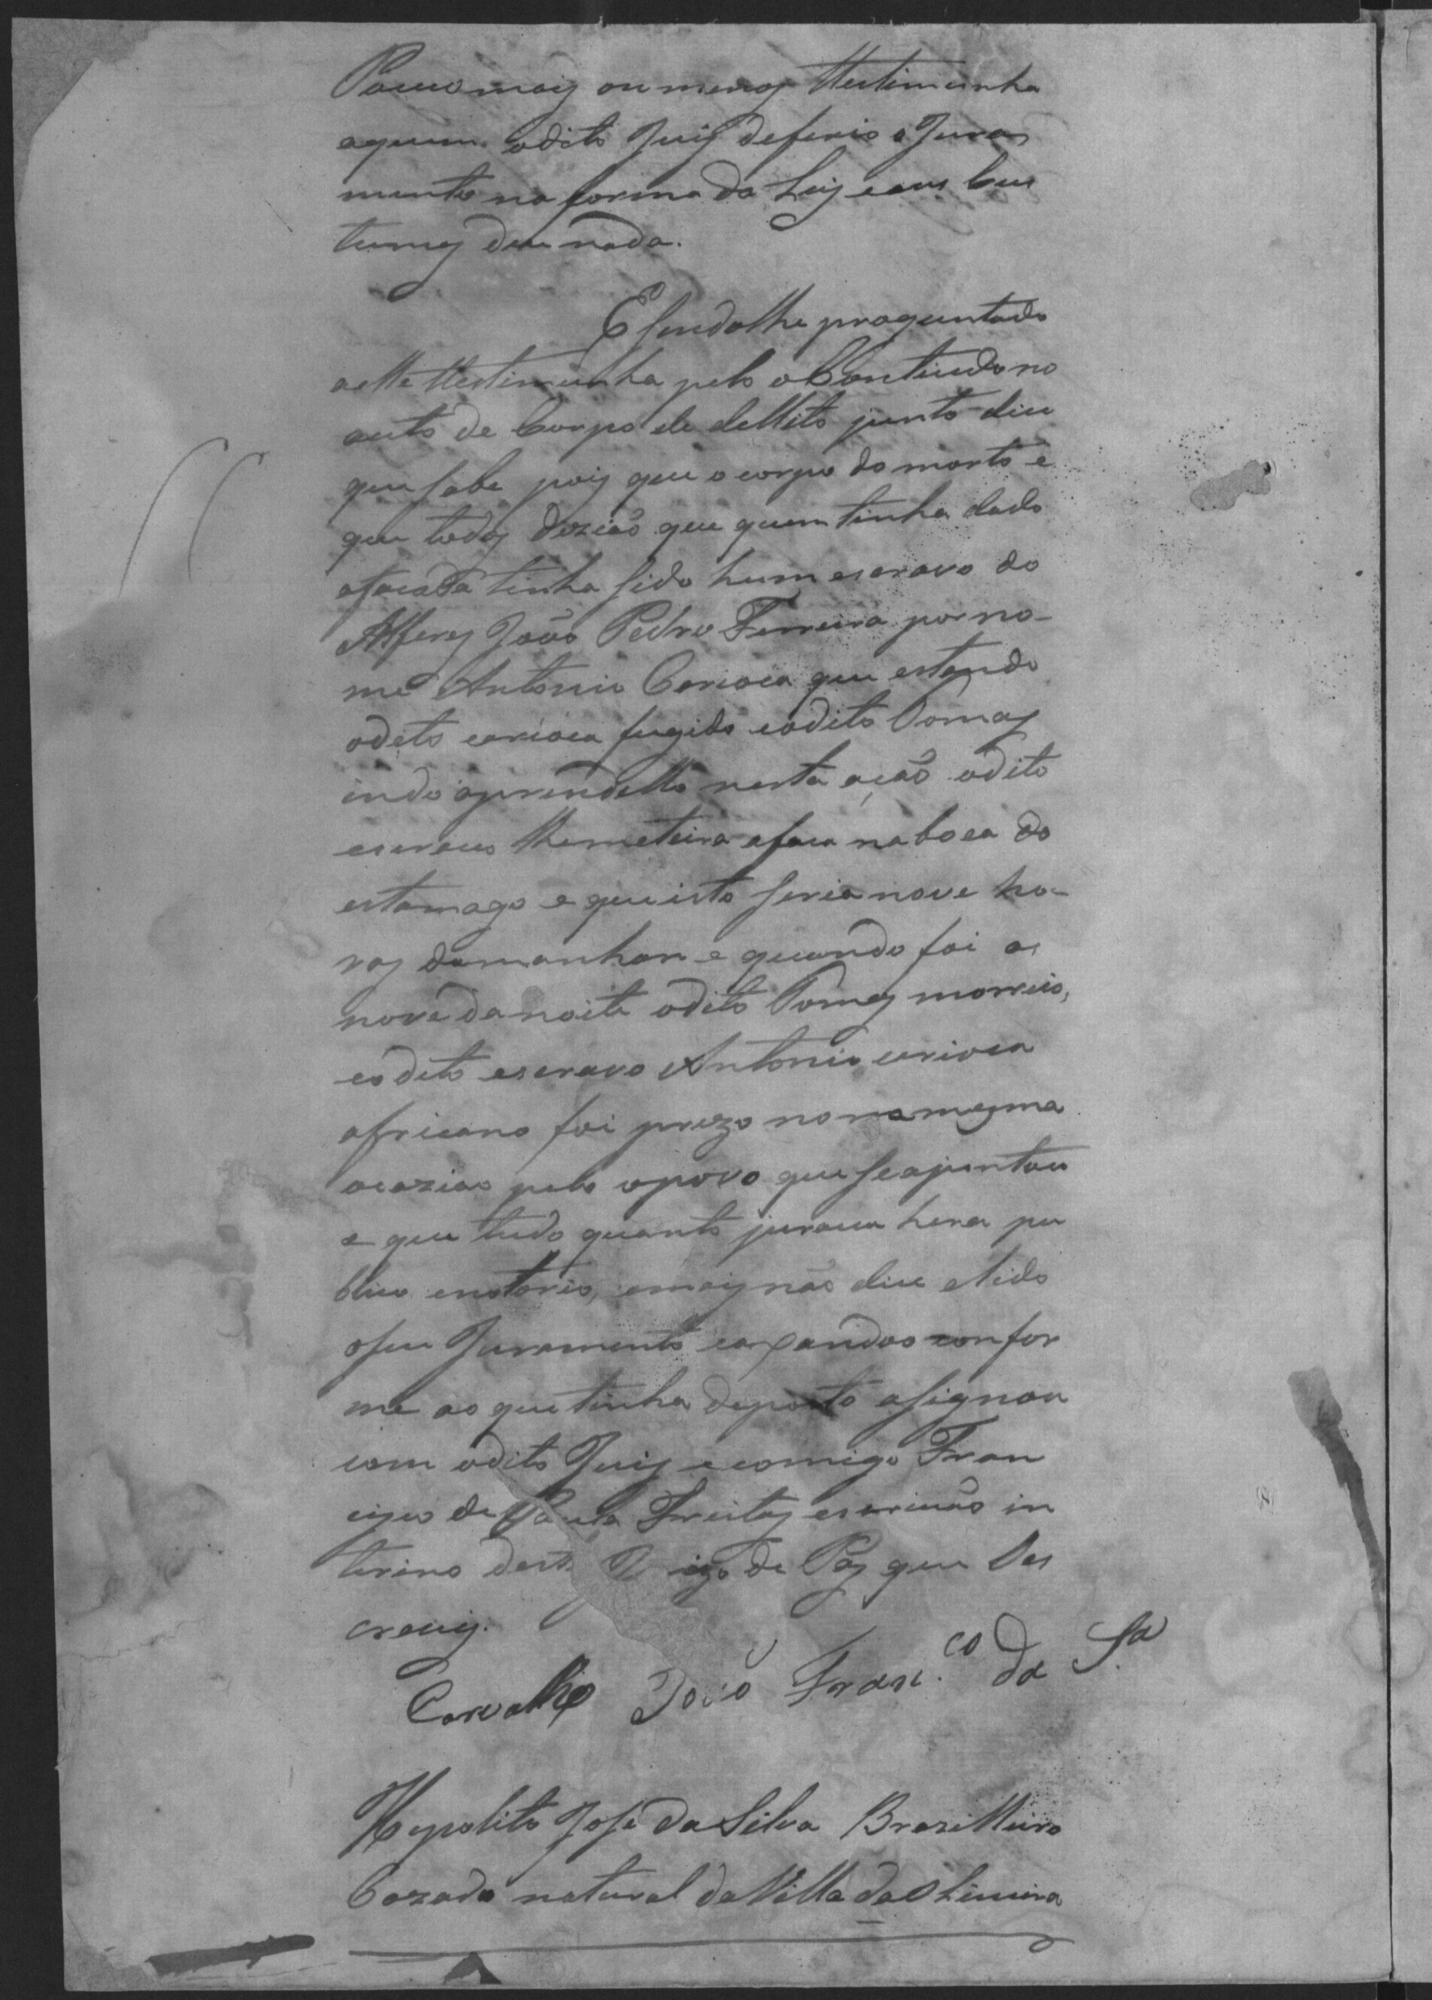 Pouco mais ou menos Testimunha
aquem odito Juiz deferio o Jura
mento na forma da Ley eaus Cus
tumes deu nada.
E sendolhe preguntado
aelle testimunha pelo oContiudo no
auto de Corpo de dellito junto dice
que sabe pois que o corpo do morto e
que todos dizião que quem tinha dado
afacada tinha sido hum escravo do
Alferes João Pedro Ferreira por no-
me Antonio Carioca que estando
odito carioca fugido eodito Tomas
indo aprendello nesta ação odito
escravo lhemeteira afaca naboca do
estamago e que isto seria nove ho-
ras damanhan e quando foi as
nove da noite odito Tomas morreio,
eodito escravo Antonio carioca
africano foi prezo no na mesma
acazião pelo opovo que seajuntou
e que tudo quanto juraua hera pu
blico enotorio, emais não dice elido
oseu Juramento eaxandoo confor
me ao que tinha deposto asignou
com odito Juiz ecomigo Fran
cisco de Paula Freitas escriuão in
terino deste Juizo de Paz que Oes
creuis.
Carvalho João Fran.co da S.a
Hypolito Jose da Silva Brazilleiro
Cazado natural da Villa da Limeira